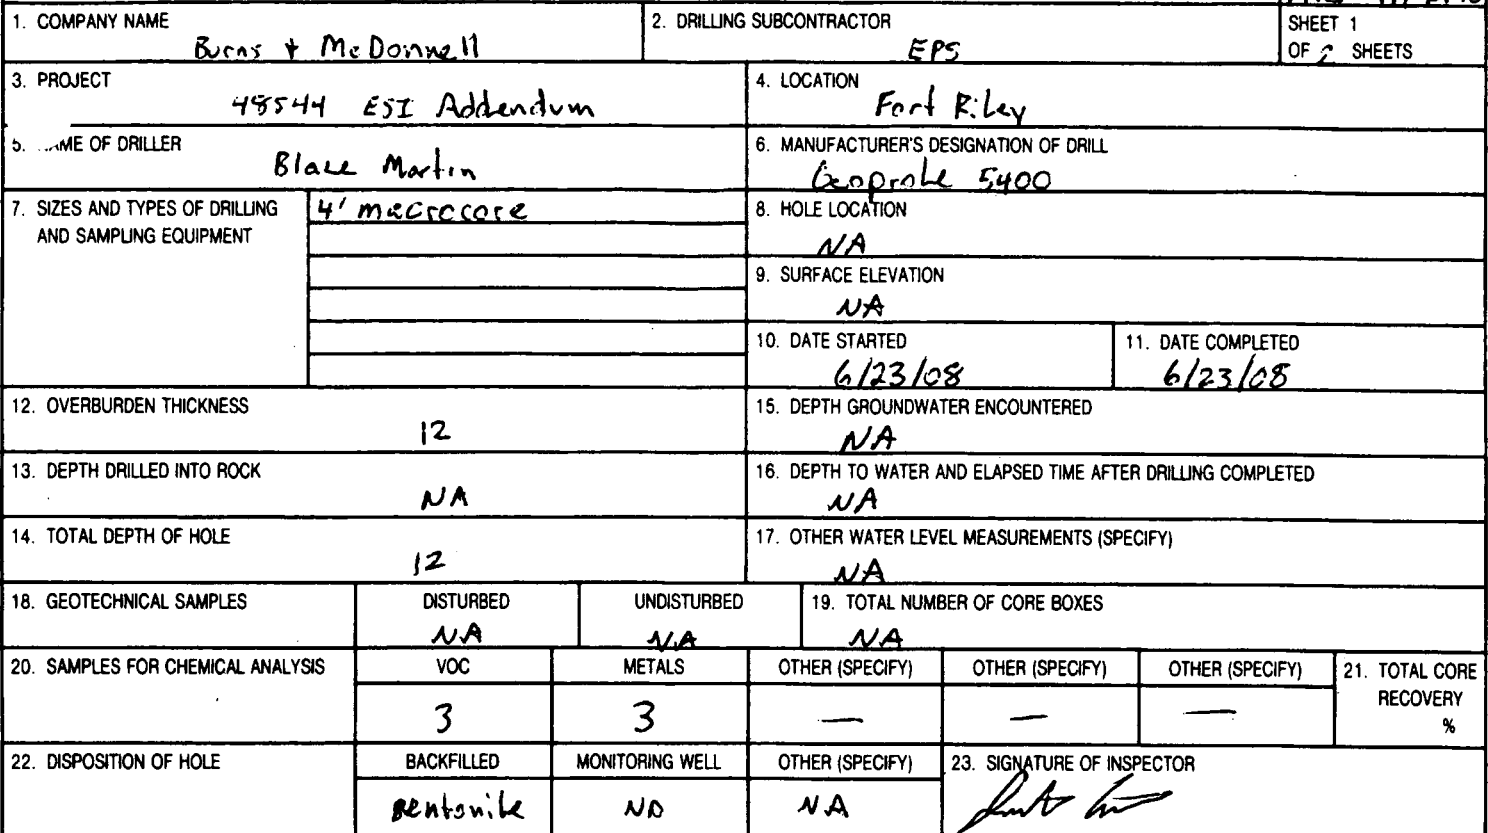 1. COMPANY NAME
Burns + McDonnell
2. DRILLING SUBCONTRACTOR
EPS
SHEET 1
OF 2 SHEETS
3. PROJECT
48544 ESI Addendum
4. LOCATION
Fort Riley
5. NAME OF DRILLER
Martin
6. MANUFACTURER'S DESIGNATION OF DRILL
Geoprobe 5400
7. SIZES AND TYPES OF DRILLING
AND SAMPLING EQUIPMENT
4' macrocore
8. HOLE LOCATION
NA
9. SURFACE ELEVATION
NA
10. DATE STARTED
6/23/08
11. DATE COMPLETED
6/23/08
12. OVERBURDEN THICKNESS
12
15. DEPTH GROUNDWATER ENCOUNTERED
NA
13. DEPTH DRILLED INTO ROCK
NA
16. DEPTH TO WATER AND ELAPSED TIME AFTER DRILLING COMPLETED
NA
14. TOTAL DEPTH OF HOLE
12
17. OTHER WATER LEVEL MEASUREMENTS (SPECIFY)
NA
18. GEOTECHNICAL SAMPLES
DISTURBED
NA
UNDISTURBED
NA
19. TOTAL NUMBER OF CORE BOXES
NA
20. SAMPLES FOR CHEMICAL ANALYSIS
VOC
3
METALS
3
OTHER (SPECIFY)
—
OTHER (SPECIFY)
—
OTHER (SPECIFY)
—
21. TOTAL CORE
RECOVERY
%
22. DISPOSITION OF HOLE
BACKFILLED
Bentonite
MONITORING WELL
NO
OTHER (SPECIFY)
NA
23. SIGNATURE OF INSPECTOR